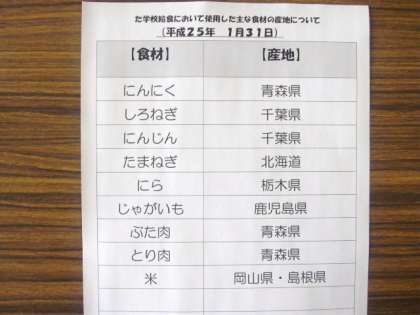 た学校給食において使用した主な食材の産地について
（平成２５年　１月３１日）
【食材】　【産地】
にんにく　青森県
しろねぎ　千葉県
にんじん　千葉県
たまねぎ　北海道
にら　栃木県
じゃがいも　鹿児島県
ぶた肉　青森県
とり肉　青森県
米　岡山県・島根県